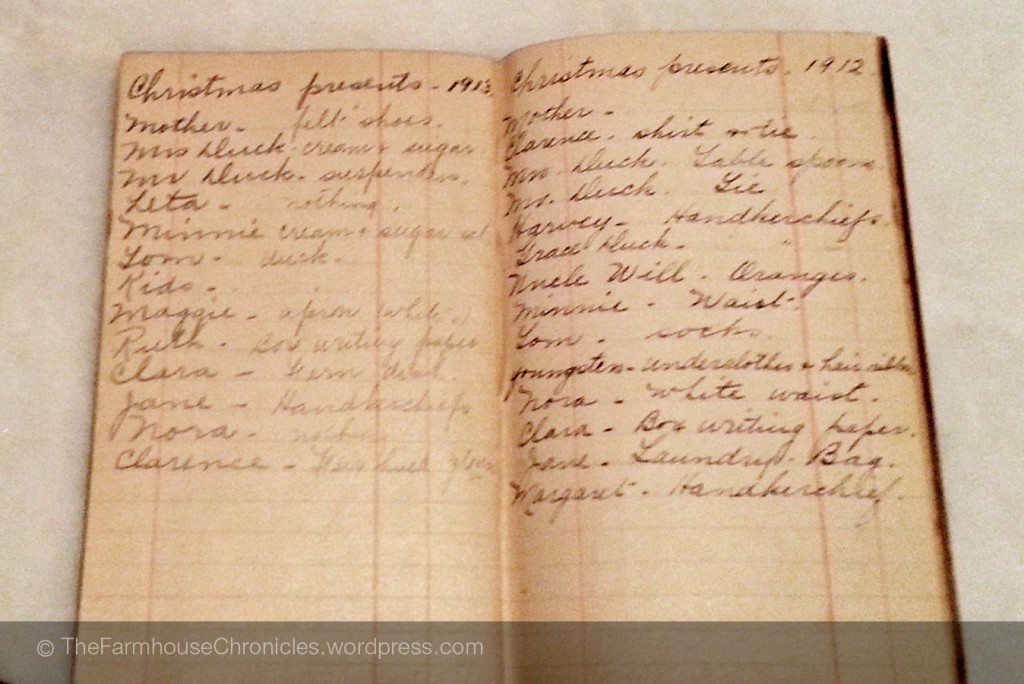 Christmas presents - 1913.
Mother - felt shoes.
Mrs Duck - cream & sugar
Mr Duck - suspenders.
Leta - nothing.
Minnie cream & sugar set
Tom - duck.
Kids -
Maggie - apron (white)
Ruth - Box writing paper
Clara - Fern dish.
Jane - Handkerchiefs
Nora - nothing
Clarence -
Christmas presents. 1912.
Mother -
Clarence. shirt & tie.
Mrs. Duck. Table spoons.
Mr. Duck. Tie
Harvey - Handkerchiefs.
Grace Duck - " "
Uncle Will - Oranges.
Minnie - Waist.
Tom - socks.
youngsters - underclothes & hair ribbon
Nora - White waist.
Clara - Box writing paper.
Jane - Laundry - Bag.
Margaret - Handkerchief.
© TheFarmhouseChronicles.wordpress.com